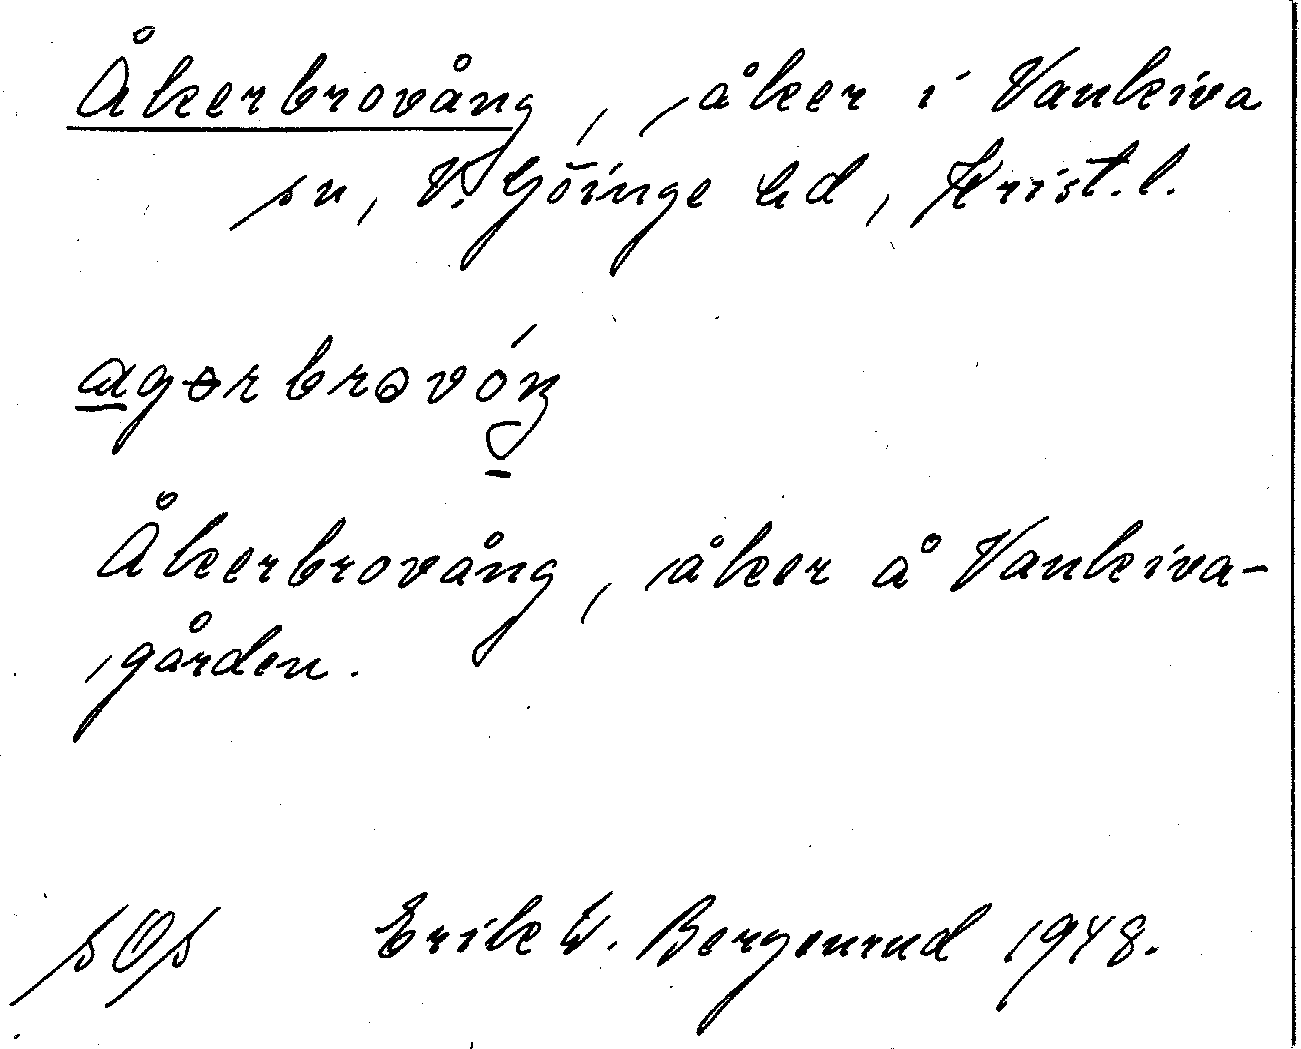 Åkerbrovång, åker i Vankiva
sn, V. Göinge hd, Krist. l.
agərbrovóŋ
Åkerbrovång, åker å Vankiva-
gården.
Erik W. Bergenrud 1948.